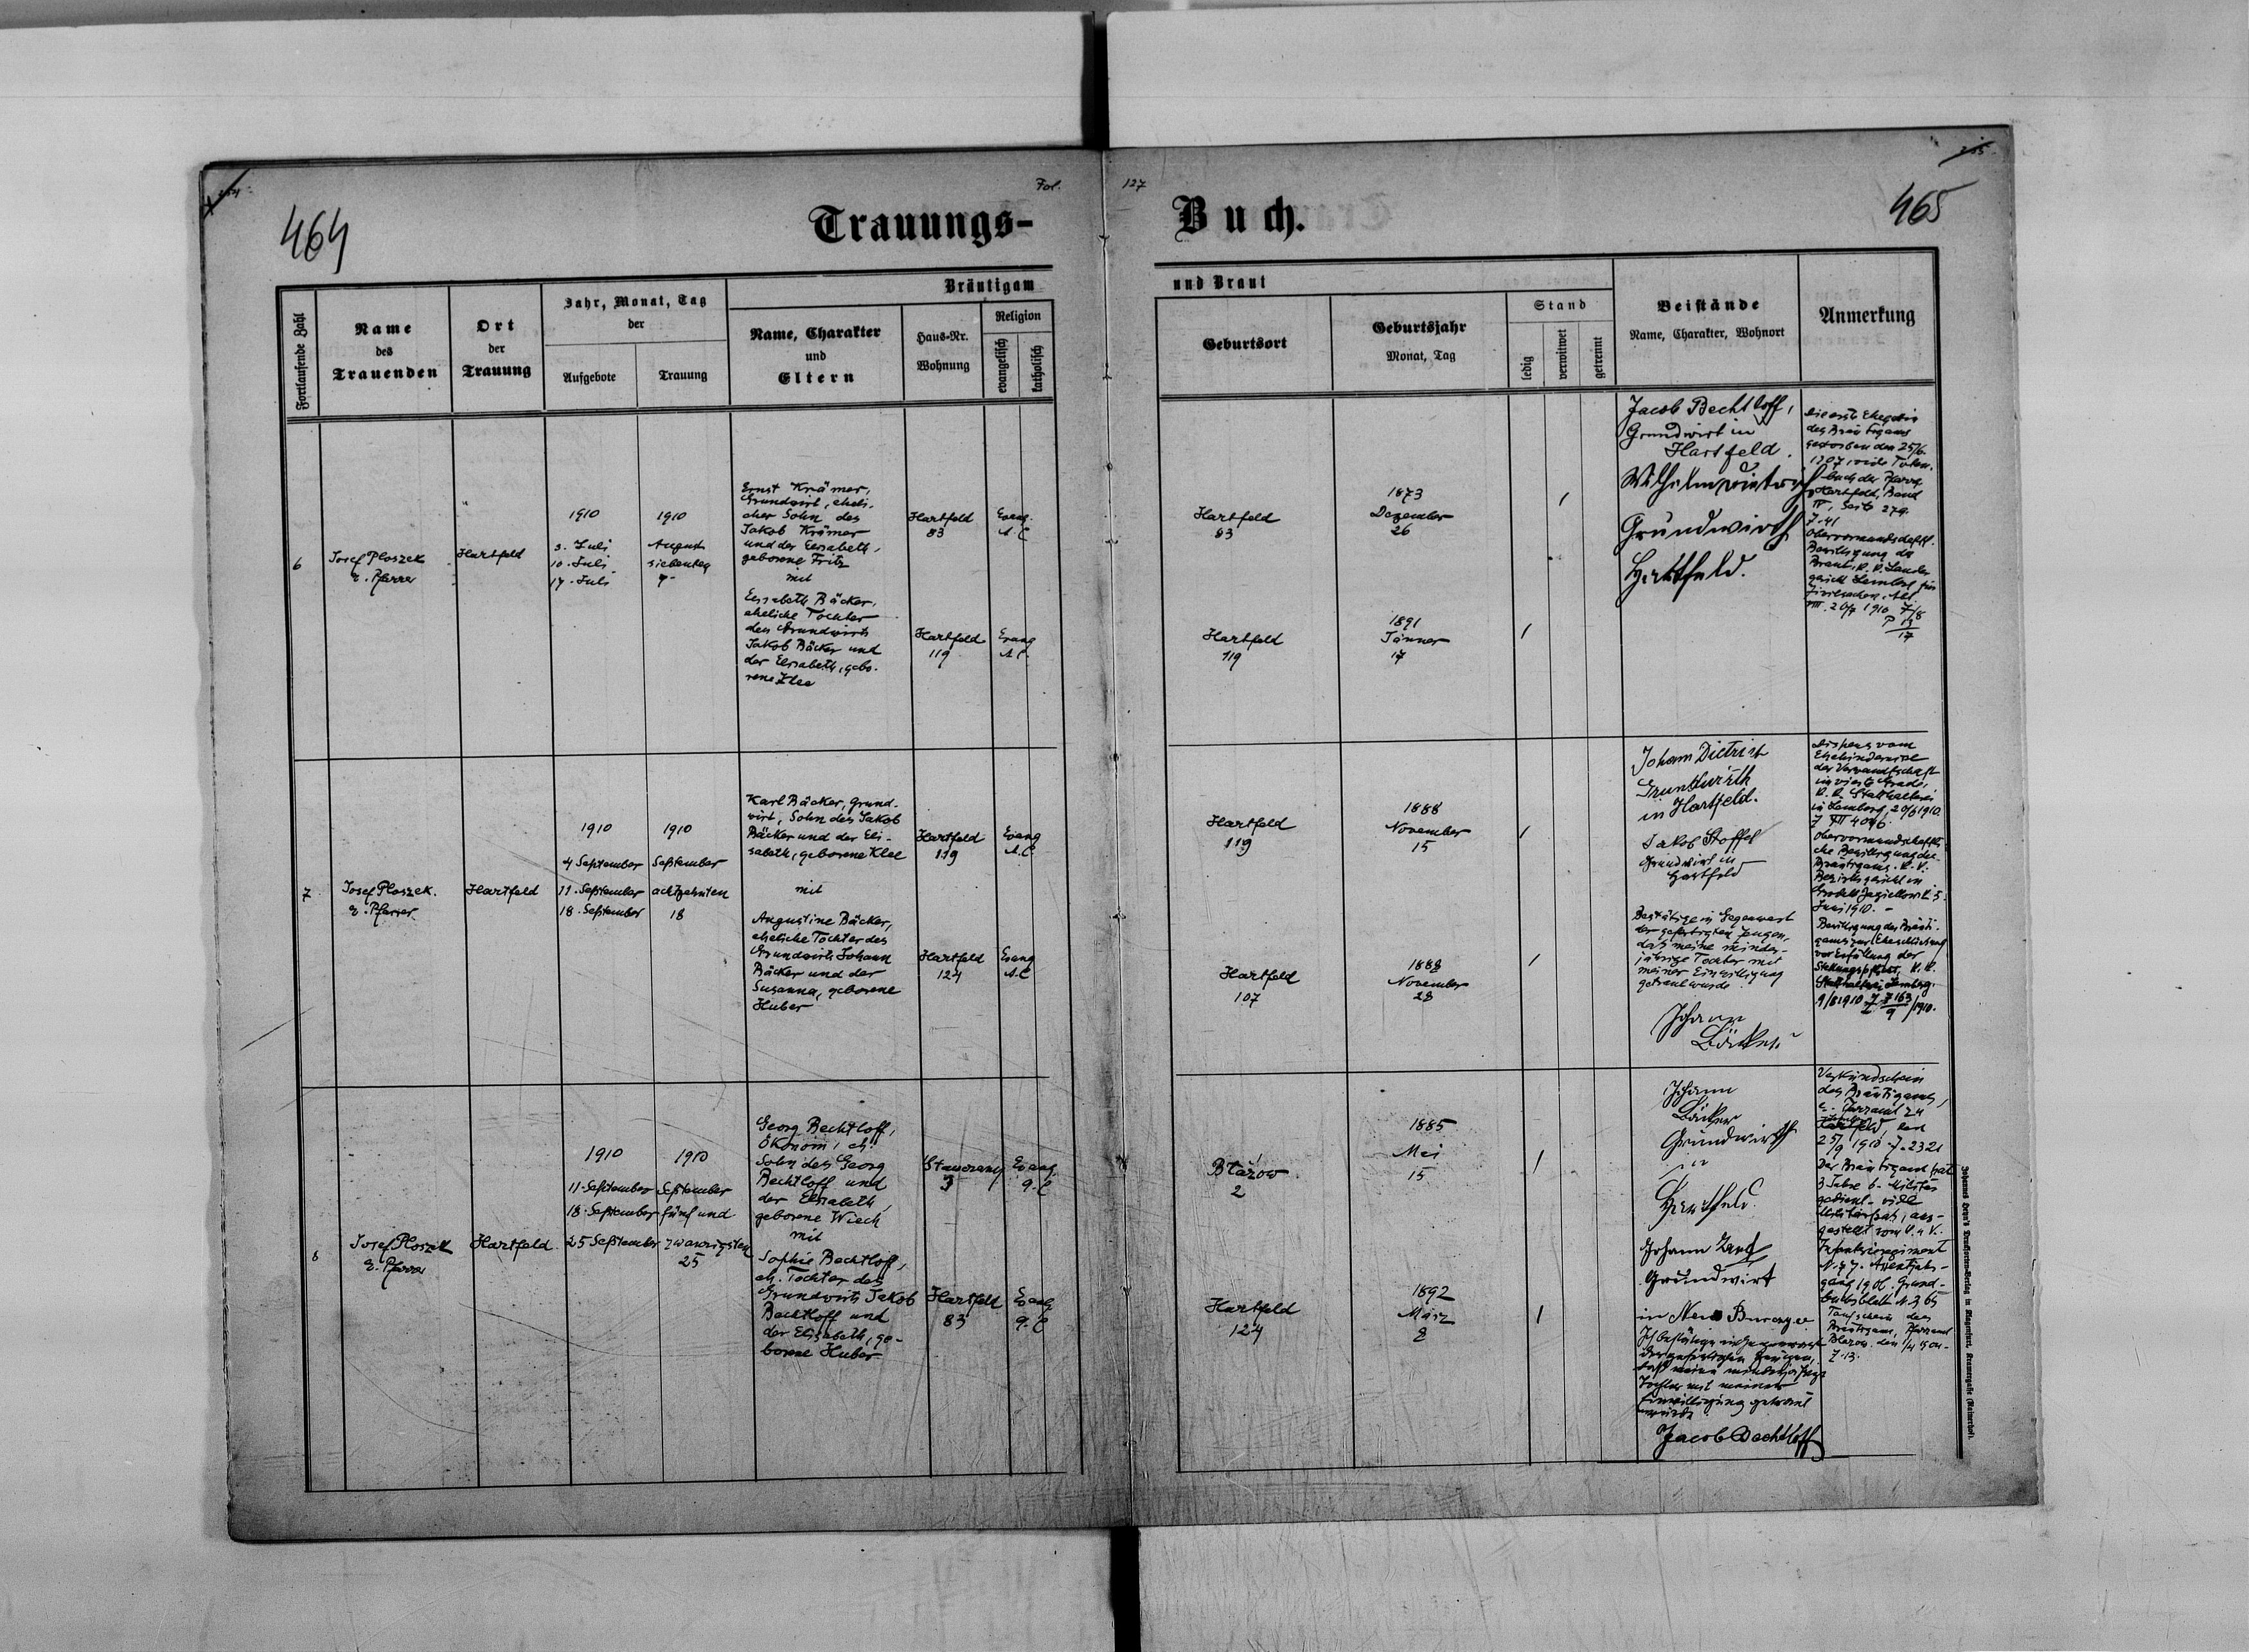 464
Fol.
127
465
Trauungs-
Buch.
Bräutigam
und Braut
Fortlaufende Zahl
Name
des
Trauenden
Ort
der
Trauung
Jahr, Monat, Tag
der
Aufgebote
Trauung
Name, Charakter
und
Eltern
Haus-Nr.
Wohnung
Religion
evangelisch
katholisch
Geburtsort
Geburtsjahr
Monat, Tag
Stand
ledig
verwitwet
getrennt
Beistände
Name, Charakter, Wohnort
Anmerkung
6
Josef Ploszek
e. Pfarrer
Hartfeld
1910
3. Juli
10. Juli
17. Juli
1910
August
siebenten
7.
Ernst Krämer,
Grundwirt, eheli-
cher Sohn des
Jakob Krämer
und der Elisabeth,
geborene Fritz
mit
Elisabeth Bäcker,
eheliche Tochter
des Grundwirts
Jakob Bäcker und
der Elisabeth, gebo-
rene Klee
Hartfeld
83
Evang.
A. C.
Hartfeld
119
Evang
A. C.
Hartfeld
83
1873
Dezember
26
Hartfeld
119
1891
Jänner
17
Jacob Bechtloff,
Grundwirt in
Hartfeld.
Wilhelm Dietrich
Grundwirth
Hartfeld.
Die erste Ehegattin
des Bräutigams
gestorben den 25/6.
1907, vide Toten-
buch der Pfarre
Hartfeld, Band
III, Seite 279.
Z. 41
Obervormundschaftl.
Bewilligung der
Braut, k. k. Landes
gericht Lemberg für
Zivilsachen, Abt.
VIII. 20/7 1910
P 13
17
7
Josef Ploszek.
e. Pfarrer.
Hartfeld
1910
4 September
11. September
18. September
1910
September
achtzehnten
18
Karl Bäcker, Grund-
wirt, Sohn des Jakob
Bäcker und der Eli-
sabeth, geborene Klee
mit
Augustine Bäcker,
eheliche Tochter des
Grundwirts Johann
Bäcker und der
Susanna, geborene
Huber
Hartfeld
119
Evang
A. C.
Hartfeld
124
Evang
A. C
Hartfeld
119
1888
November
15
Hartfeld
107
1888
November
28
Johann Dietrich
Grundwirth
in Hartfeld.
Jakob Stoffel
Grundwirt in
Hartfeld
Bestätige in Gegenwart
der gefertigten Zeugen,
daß meine minder-
jährige Tochter mit
meiner Einwilligung
getraut wurde.
Johann
Bäcker
Dispens vom
Ehehindernisse
der Verwandtschaft
im vierten Grade,
k. k. Statthalterei
in Lemberg, 20/6 1910.
Obervormundschaftli-
che Bewilligung des
Bräutigams. k. k.
Bezirksgericht in
Grodek Jagiellonski 5.
Juni 1910. –
Bewilligung des Bräuti-
gams zur Eheschließung
vor Erfüllung der
Stellungspflicht, k. k.
Statthalterei Lemberg.
9/8 1910
8
Josef Ploszek
e. Pfarrer
Hartfeld
1910
11. September
18. September
25 September
1910
September
fünf und
zwanzigsten
25
Georg Bechtloff,
Ökonom, eh.
Sohn des Georg
Bechtloff und
der Elisabeth,
geborene Wiech
mit
Sophie Bechtloff,
eh. Tochter des
Grundwirts Jakob
Bechtloff und
der Elisabeth, ge-
borene Huber
3
Evang.
Hartfeld
83
Evang
Błażow
2
1885
Mai
15
Hartfeld
124
1892
März
8
Johann
Bäcker
Grundwirth
in
Hartfeld.
Johann
Grundwirt
in Neu Burczyce
Ich bestätige in Gegenwart
der gefertigten Zeugen,
daß meine minderjährige
Tochter mit meiner
Einwilligung getraut
wurde
Jacob Bechtloff
Verkündschein
des Bräutigams,
25/9 1910 Z. 2321
Der Bräutigam hat
3 Jahre b. Militär
gedient. vide
Militärpaß, aus-
gestellt vom k. u. k.
Infanterieregiment
N. 77. Assentjahr-
gang 1906, Grund-
buchsblatt N. 365
Taufschein des
Bräutigams, Pfarramt
Z. 13.